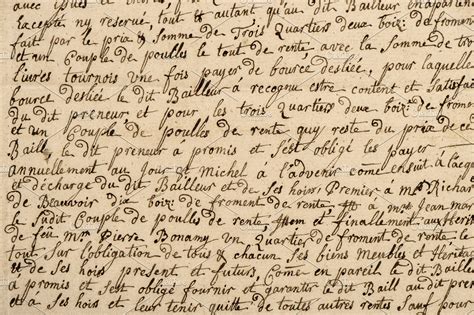 avec issues et tout autant
hacepte, ny reserve, tout & autant qu'au dit Bailleur en aparten
fait par le prix & Somme de Trois Quartiers deux boiz: de fromen
et un Couple de poulles le tout de rente avec la Somme de
livres tournois une fois payer de bource desliée, pour laquelle
bource desliée le dit Bailleur a recognu estre content et Satisfa
du dit preneur et pour les trois quartiers deux boiz: de from
et un Couple de poulles de rente quy reste du prix de ce
Baill, le dit preneur à promis et s'est obligé les payer
annuellement au jour St Michel à l'advenir come ensuit à l'acq
et décharge du dit Bailleur et de Ses hoirs: Premier a Mr Richar
de Beauvoir dix boiz: de froment de rente, It a Mr Jean mar
le sudit Couple de poulles de rente, Item et finallement aux Heri
de feu Mr Pierre Bonamy un Quartier de froment de rente le
tout Sur l'obligation de tous & chacun Ses biens Meubles et Heritag
& de Ses hoirs present et futurs, Come en pareil le dit Baille
a promis et s'est obligé fournir et garantir le dit Baill au dit pren
et à Ses hoirs et leur tenir quitte de toutes autres rentes Sauf pour